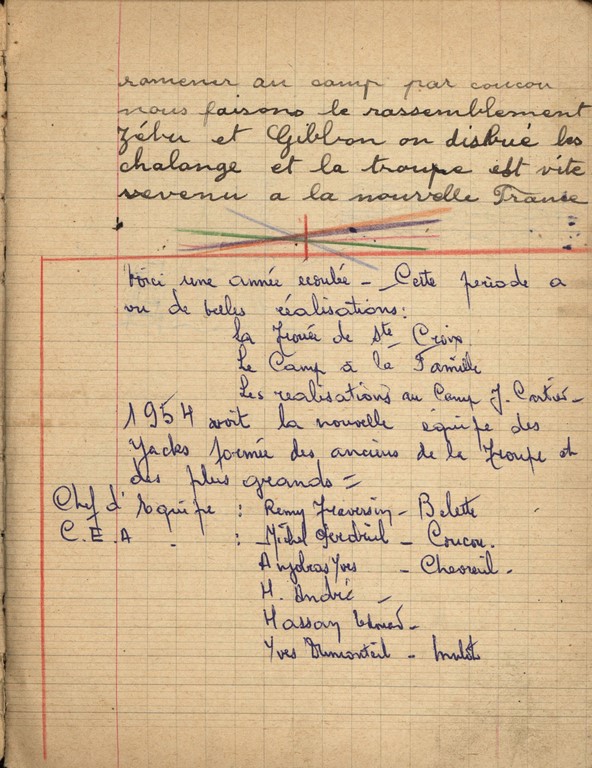 ramener au camp par coucou
nous faisons le rassemblement
Zébu et Gibbon on distrué les
chalange et la troupe est vite
revenu a la nouvelle France
Voici une année ecoulée - Cette periode a
vu de belles réalisations:
La Trouée de Ste Croix
Le Camp à la Famille
Les realisations au Camp J. Cartier -
1954 voit la nouvelle équipe des
Yacks formée des anciens de la Troupe et
des plus grands =
Chef d'Equipe : Remy Traversin - Belette
C.E.A - : Michel - Coucou.
Yves - Chevreuil -
H. André -
Hassan
Yves Dumonteil - mulot